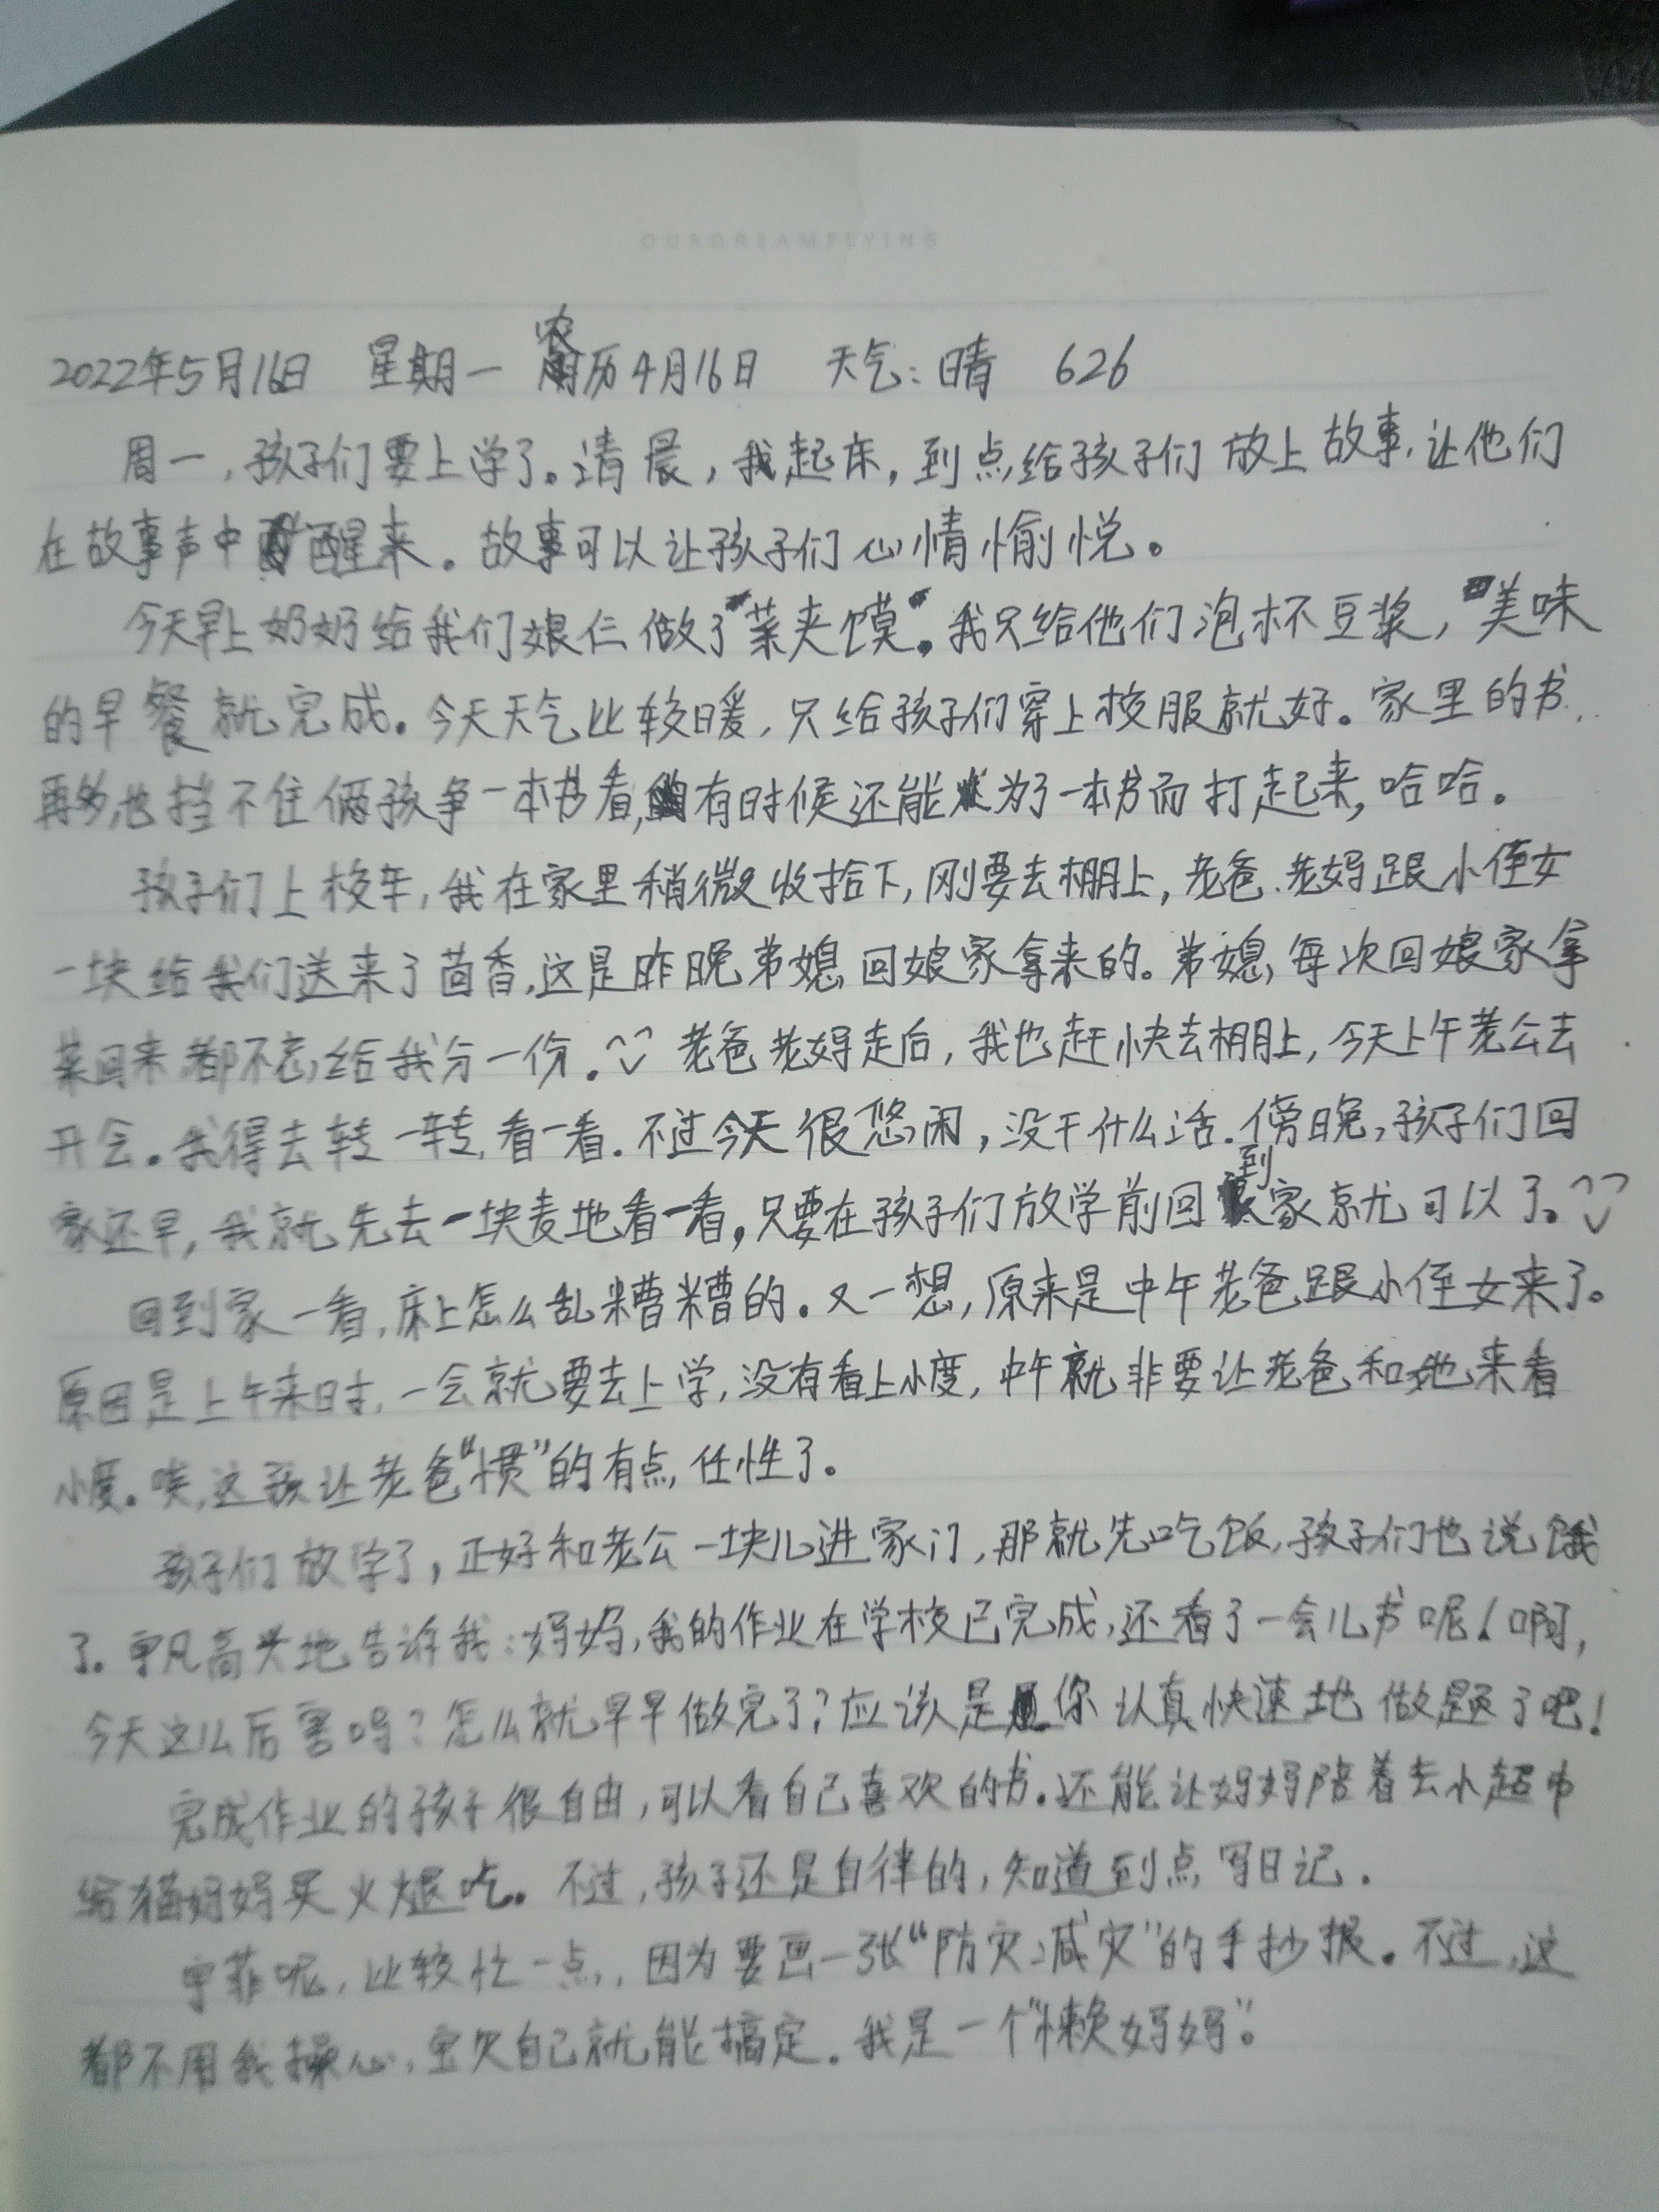 OURDREAMFLYING
2022年5月16日 星期一 农历4月16日 天气:晴 626
周一,孩子们要上学了。清晨,我起床,到点给孩子们放上故事,让他们
在故事声中醒来。故事可以让孩子们心情愉悦。
今天早上奶奶给我们娘仨做了“菜夹馍”。我只给他们泡杯豆浆,美味
的早餐就完成。今天天气比较暖,只给孩子们穿上校服就好。家里的书
再多,也挡不住俩孩争一本书看,有时候还能为了一本书而打起来,哈哈。
孩子们上校车,我在家里稍微收拾下,刚要去棚上,老爸.老妈跟小侄女
一块给我们送来了茴香,这是昨晚弟媳回娘家拿来的。弟媳每次回娘家拿
菜回来都不忘给我分一份。老爸老妈走后,我也赶快去棚上,今天上午老公去
开会。我得去转一转,看一看。不过今天很悠闲,没干什么活。傍晚,孩子们回
家还早,我就先去一块麦地看一看,只要在孩子们放学前回到家就可以了。
回到家一看,床上怎么乱糟糟的。又一想,原来是中午老爸跟小侄女来了。
原因是上午来时,一会就要去上学,没有看上小度,中午就非要让老爸和她来看
小度。唉,这孩让老爸“惯”的有点任性了。
孩子们放学了,正好和老公一块儿进家门,那就先吃饭,孩子们也说饿
了。宇凡高兴地告诉我:妈妈,我的作业在学校已完成,还看了一会儿书呢!啊,
今天这么厉害吗?怎么就早早做完了?应该是你认真快速地做题了吧!
完成作业的孩子很自由,可以看自己喜欢的书。还能让妈妈陪着去小超市
给猫妈妈买火腿吃。不过,孩子还是自律的,知道到点写日记.
宇菲呢,比较忙一点,因为要画一张“防灾减灾”的手抄报。不过,这
都不用我操心,宝贝自己就能搞定。我是一个“懒妈妈”。